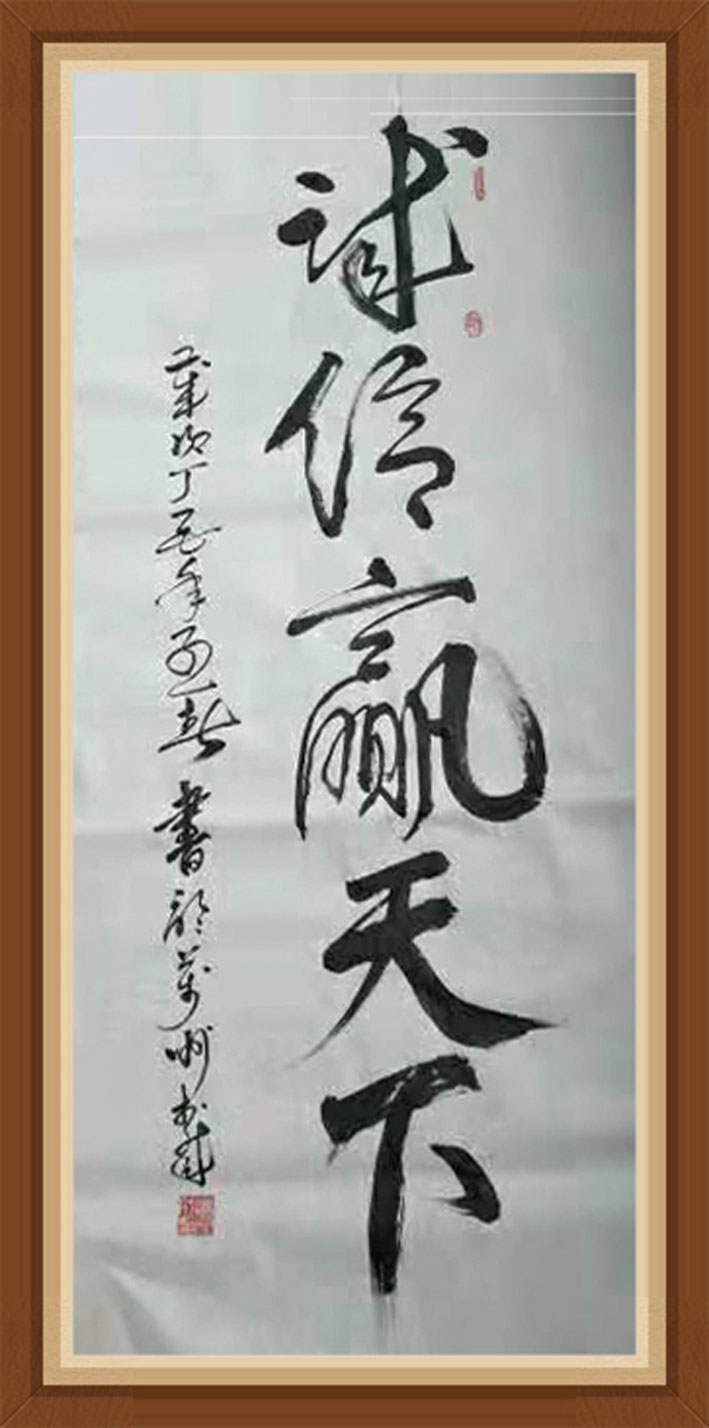 诚信赢天下
岁次丁酉年孟春書於萬州